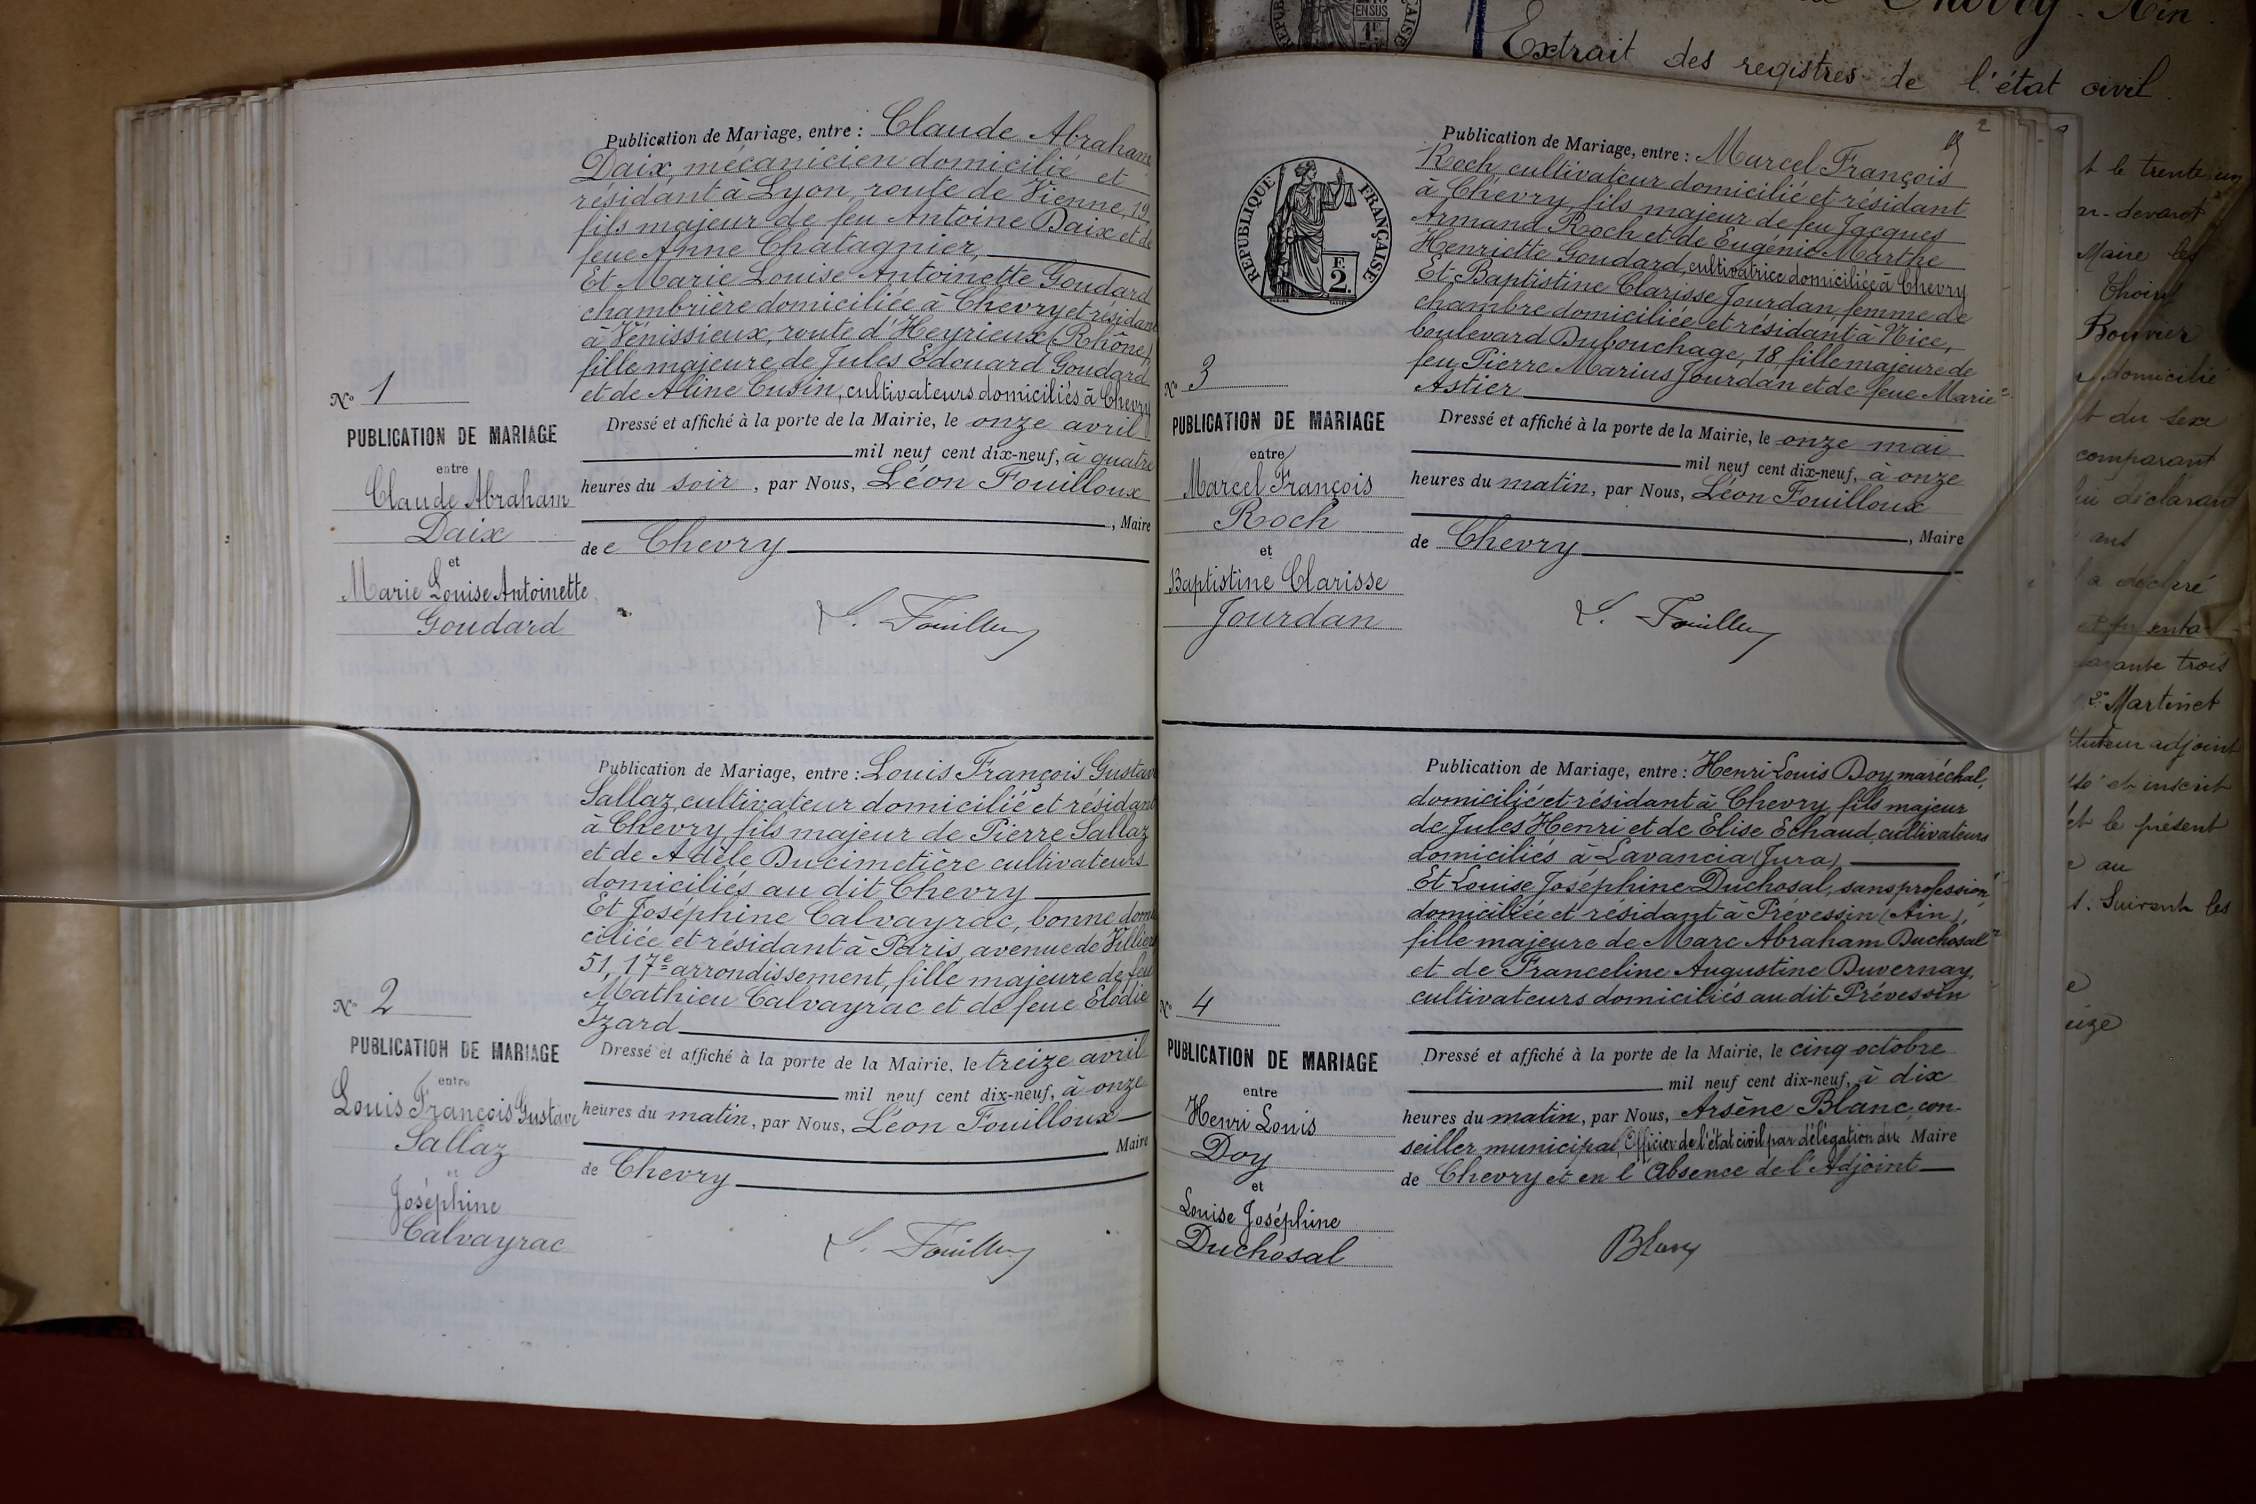 Publication de Mariage, entre : Claude Abraham
Daix, mécanicien domicilié et
résidant à Lyon, route de Vienne, 19
fils majeur de feu Antoine Daix et de
feue Anne Chatagnier,
Et Marie Louise Antoinette Goudard
chambrière domiciliée à Chevry et résidant
à Vénissieux, route d'Heyrieux (Rhône),
fille majeure de Jules Edouard Goudard
et de Aline Cusin, cultivateurs domiciliés à Chevry
Dressé et affiché à la porte de la Mairie, le onze avril
mil neuf cent dix-neuf, à quatre
heures du soir, par Nous, Léon Fouilloux
, Maire
de Chevry
L. Fouilloux
N° 1
PUBLICATION DE MARIAGE
entre
Claude Abraham
Daix
et
Marie Louise Antoinette
Goudard
Publication de Mariage, entre : Louis François Gustave
Sallaz, cultivateur domicilié et résidant
à Chevry, fils majeur de Pierre Sallaz
et de Adèle Ducimetière cultivateurs
domiciliés au dit Chevry
Et Joséphine Calvayrac, bonne domi
ciliée et résidant à Paris, avenue de Villiers
51, 17e arrondissement, fille majeure de feu
Mathieu Calvayrac et de feue Elodie
Izard
Dressé et affiché à la porte de la Mairie, le treize avril
mil neuf cent dix-neuf, à onze
heures du matin, par Nous, Léon Fouilloux
Maire
de Chevry
L. Fouilloux
N° 2
PUBLICATION DE MARIAGE
entre
Louis François Gustave
Sallaz
et
Joséphine
Calvayrac
2
Publication de Mariage, entre : Marcel François
Roch, cultivateur domicilié et résidant
à Chevry, fils majeur de feu Jacques
Armand Roch et de Eugénie Marthe
Henriette Goudard, cultivatrice domiciliée à Chevry
Et Baptistine Clarisse Jourdan, femme de
chambre domiciliée et résidant à Nice,
boulevard Dubouchage, 18, fille majeure de
feu Pierre Marius Jourdan et de feue Marie
Astier
Dressé et affiché à la porte de la Mairie, le onze mai
mil neuf cent dix-neuf, à onze
heures du matin, par Nous, Léon Fouilloux
, Maire
de Chevry
L. Fouilloux
RÉPUBLIQUE FRANÇAISE
F
2.
N° 3
PUBLICATION DE MARIAGE
entre
Marcel François
Roch
et
Baptistine Clarisse
Jourdan
Publication de Mariage, entre : Henri Louis Doy maréchal,
domicilié et résidant à Chevry, fils majeur
de Jules Henri et de Elise Echaud, cultivateurs
domiciliés à Lavancia (Jura)
Et Louise Joséphine Duchosal, sans profession
domiciliée et résidant à Prévessin (Ain),
fille majeure de Marc Abraham Duchosal
et de Franceline Augustine Duvernay,
cultivateurs domiciliés au dit Prévessin
Dressé et affiché à la porte de la Mairie, le cinq octobre
mil neuf cent dix-neuf, à dix
heures du matin, par Nous, Arsène Blanc, con-
seiller municipal, Officier de l'état civil par délégation du Maire
de Chevry et en l'Absence de l'Adjoint
Blanc
N° 4
PUBLICATION DE MARIAGE
entre
Henri Louis
Doy
et
Louise Joséphine
Duchosal
de Chevry - Ain.
Extrait des registres de l'état civil.
t le trente un
n-devant
Maire les
Thoiry
Bouvier
domicilié
t du sexe
comparant
déclarant
ans
a déclaré
arante trois
2° Martinet
tuteur adjoint
et inscrit
et le présent
au
Suivent les